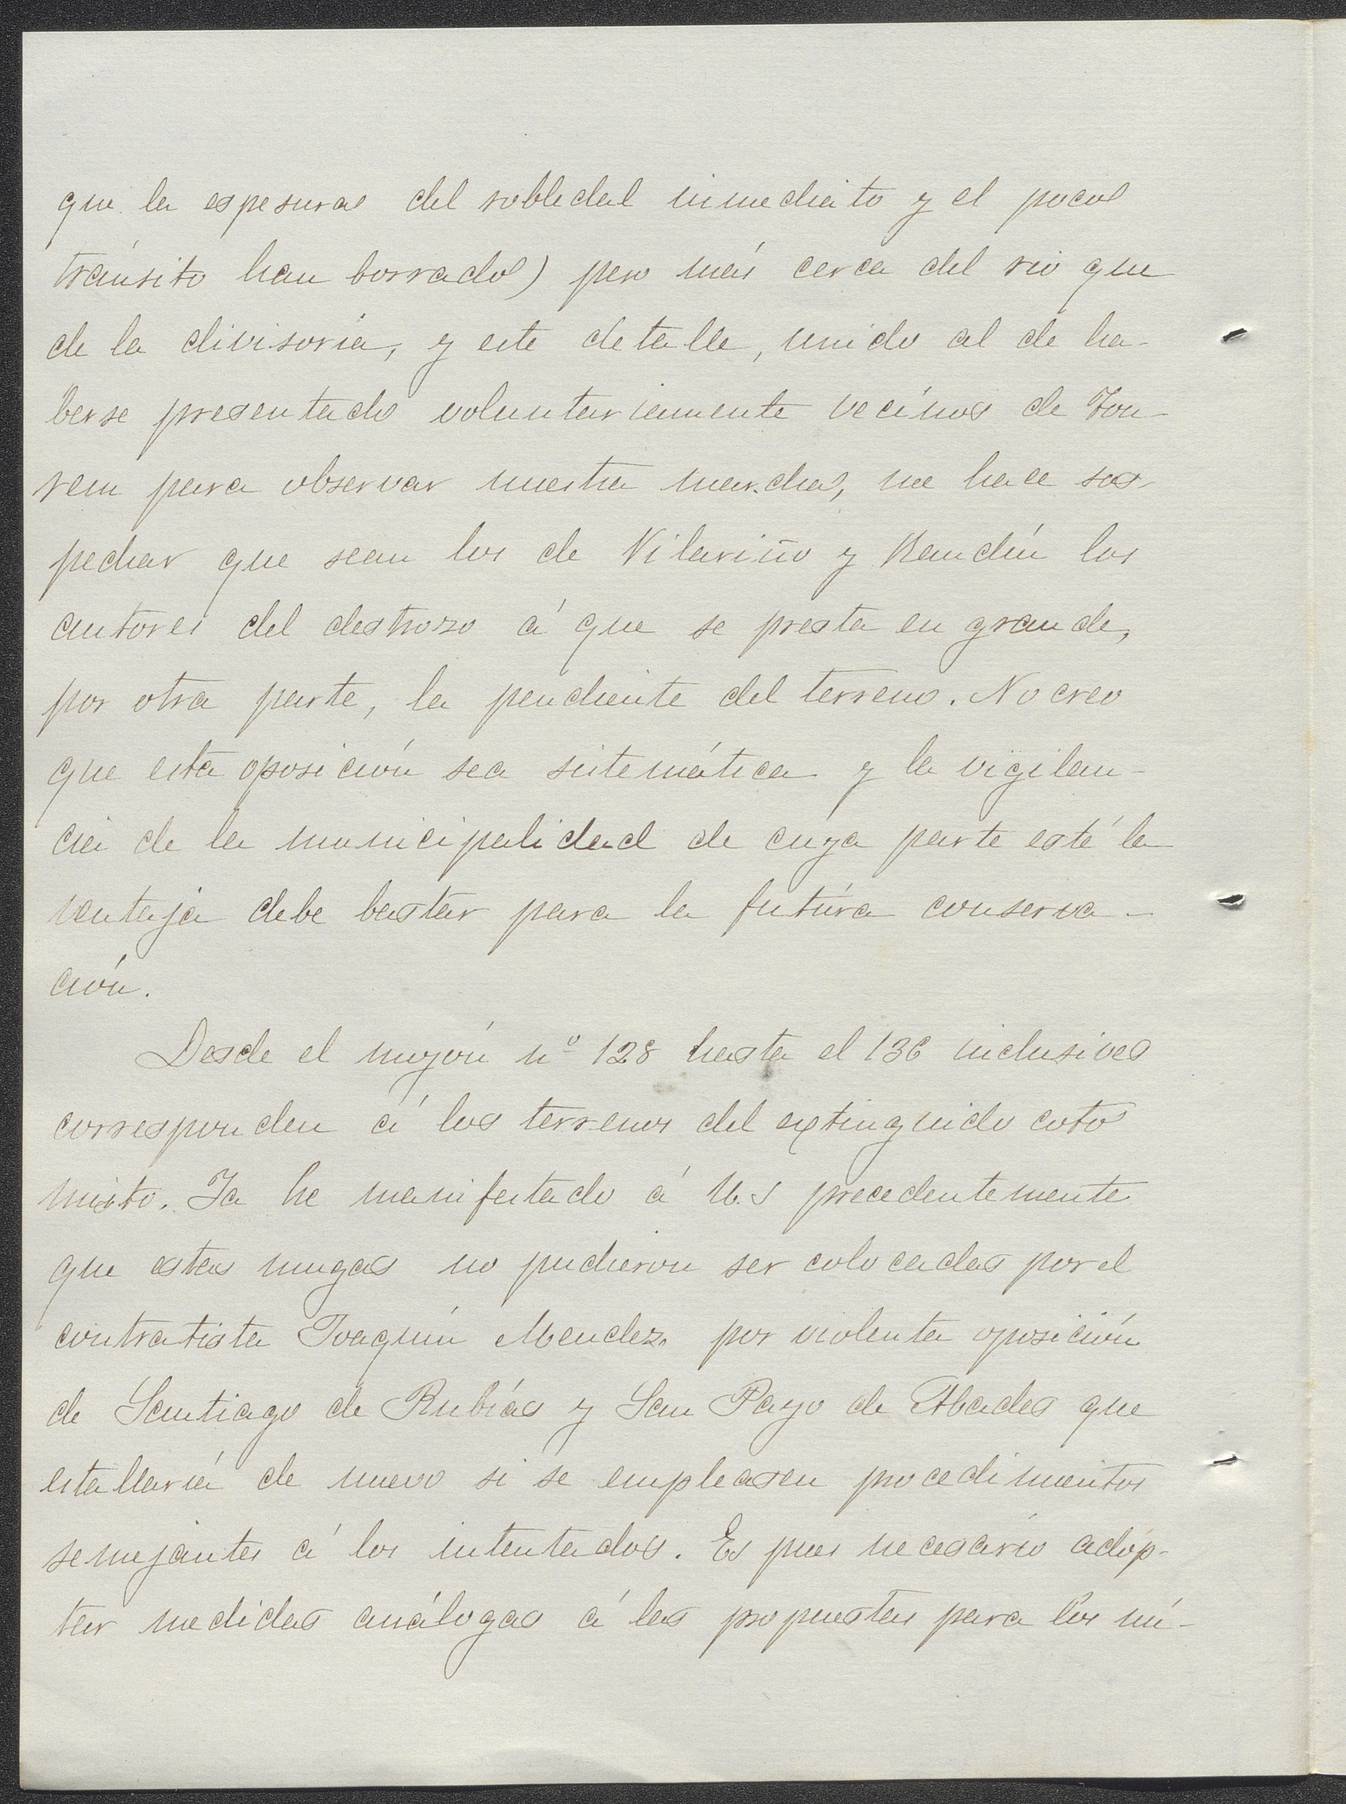 que la espesura del robledal inmediato y el poco
tránsito han borrado) pero más cerca del rio que
de la divisoria, y este detalle, unido al de ha-
berse presentado voluntariamente vecinos de Tou-
rem para observar nuestra marcha, me hace sos-
pechar que sean los de Vilariño y Randín los
autores del destrozo á que se presta en grande,
por otra parte, la pendiente del terreno. No creo
que esta oposición sea sistemática y la vigilan-
cia de la municipalidad de cuya parte esté la
ventaja debe bastar para la futúra conserva-
ción.
Desde el mojón nº 128 hasta el 136 inclusives
corresponden á los terrenos del extinguido coto
misto. Ya he manifestado á U.S precedentemente
que estas mugas no pudieron ser colocadas por el
contratista Joaquín Mendez por violenta oposición
de Santiago de Rubiás y San Payo de Abades que
estallaría de nuevo si se empleasen procedimientos
semejantes á los intentados. Es pues necesario adop-
tar medidas análogas á las propuestas para los nú-